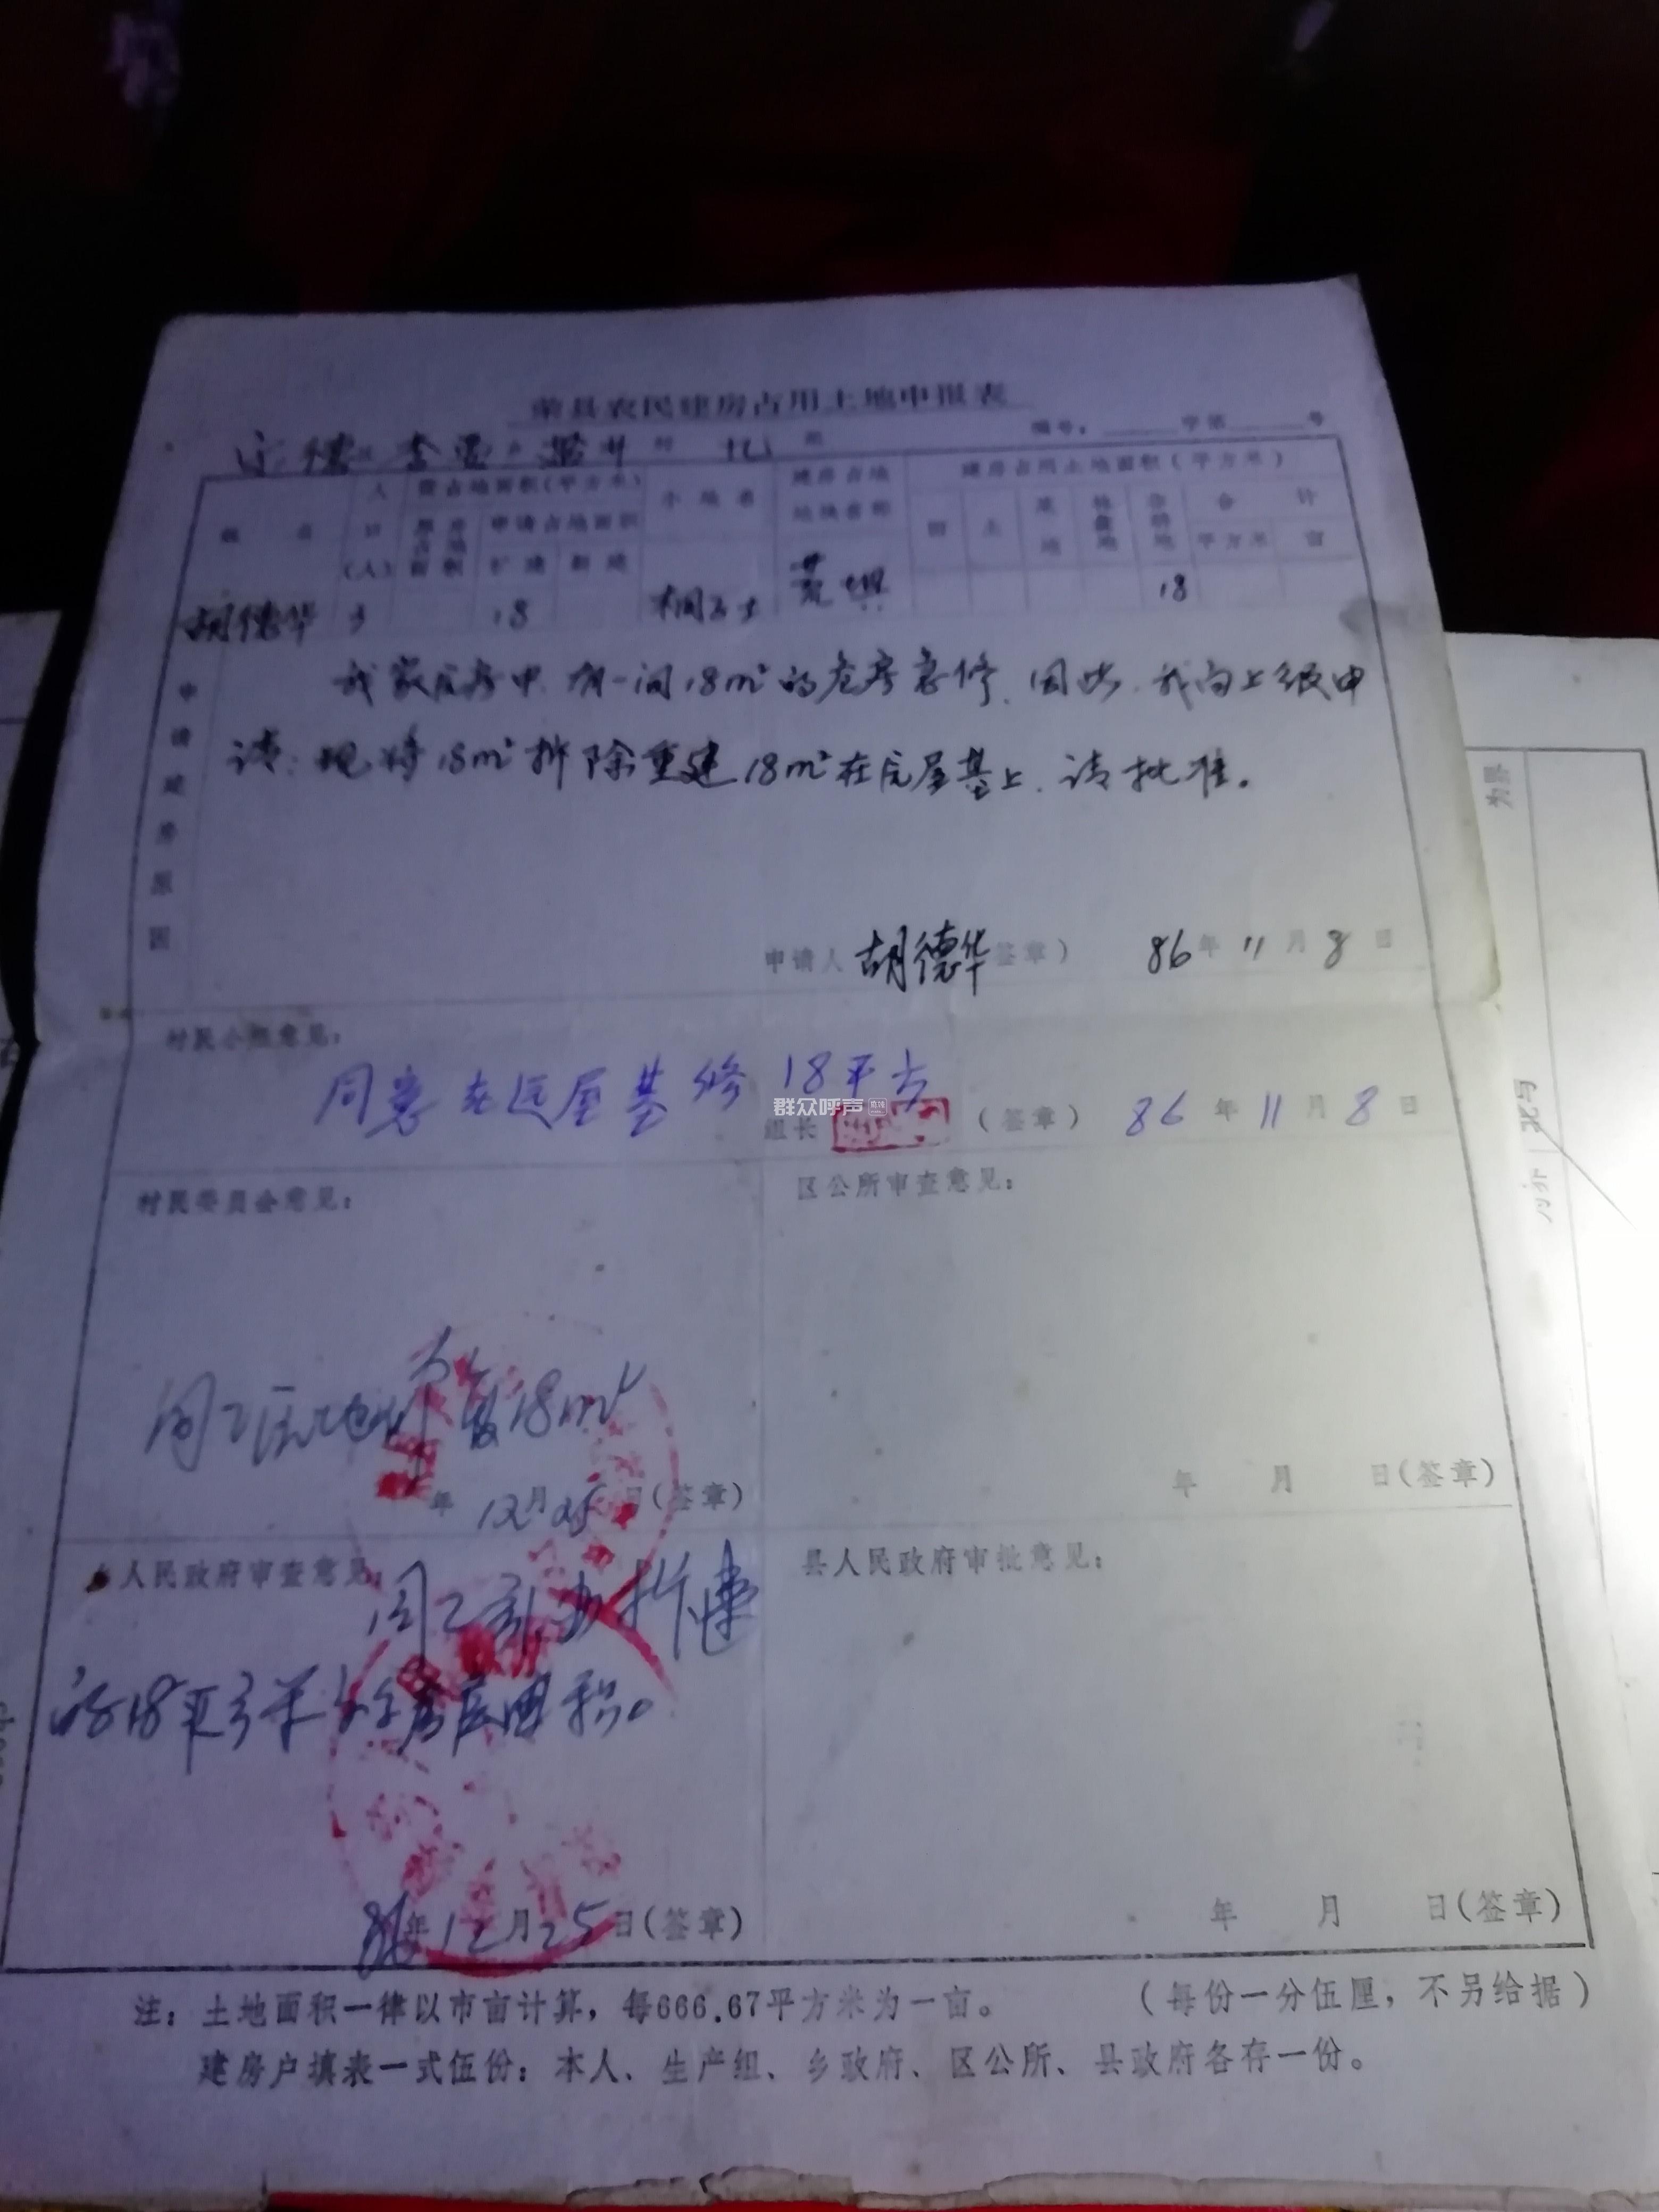 荣县农民建房占用土地申报表
编号：　字第　号
村　组
姓　名　人口(人)　需占地面积(平方米)　小地名　建房占地地块名称　建房占用土地面积(平方米)
原房占地面积　申请占地面积　田　土　菜地　合　计
扩建　新建　平方米　亩
胡德华　3　18　18
申请建房原因
我家住房中有一间18m²的危房急修，因此，我向上级申
请：现将18m²拆除重建18m²在原屋基上，请批准。
申请人 胡德华 签章)　86年11月8日
村民小组意见：
同意在原屋基修18平方
群众呼声
组长　(签章)　86年11月8日
村民委员会意见：
18m²
年12月25日(签章)
区公所审查意见：
年　月　日(签章)
人民政府审查意见：
拆建
的18平方米　面积。
86年12月25日(签章)
县人民政府审批意见：
年　月　日(签章)
注：土地面积一律以市亩计算，每666.67平方米为一亩。　(每份一分伍厘，不另给据)
建房户填表一式伍份：本人、生产组、乡政府、区公所、县政府各存一份。